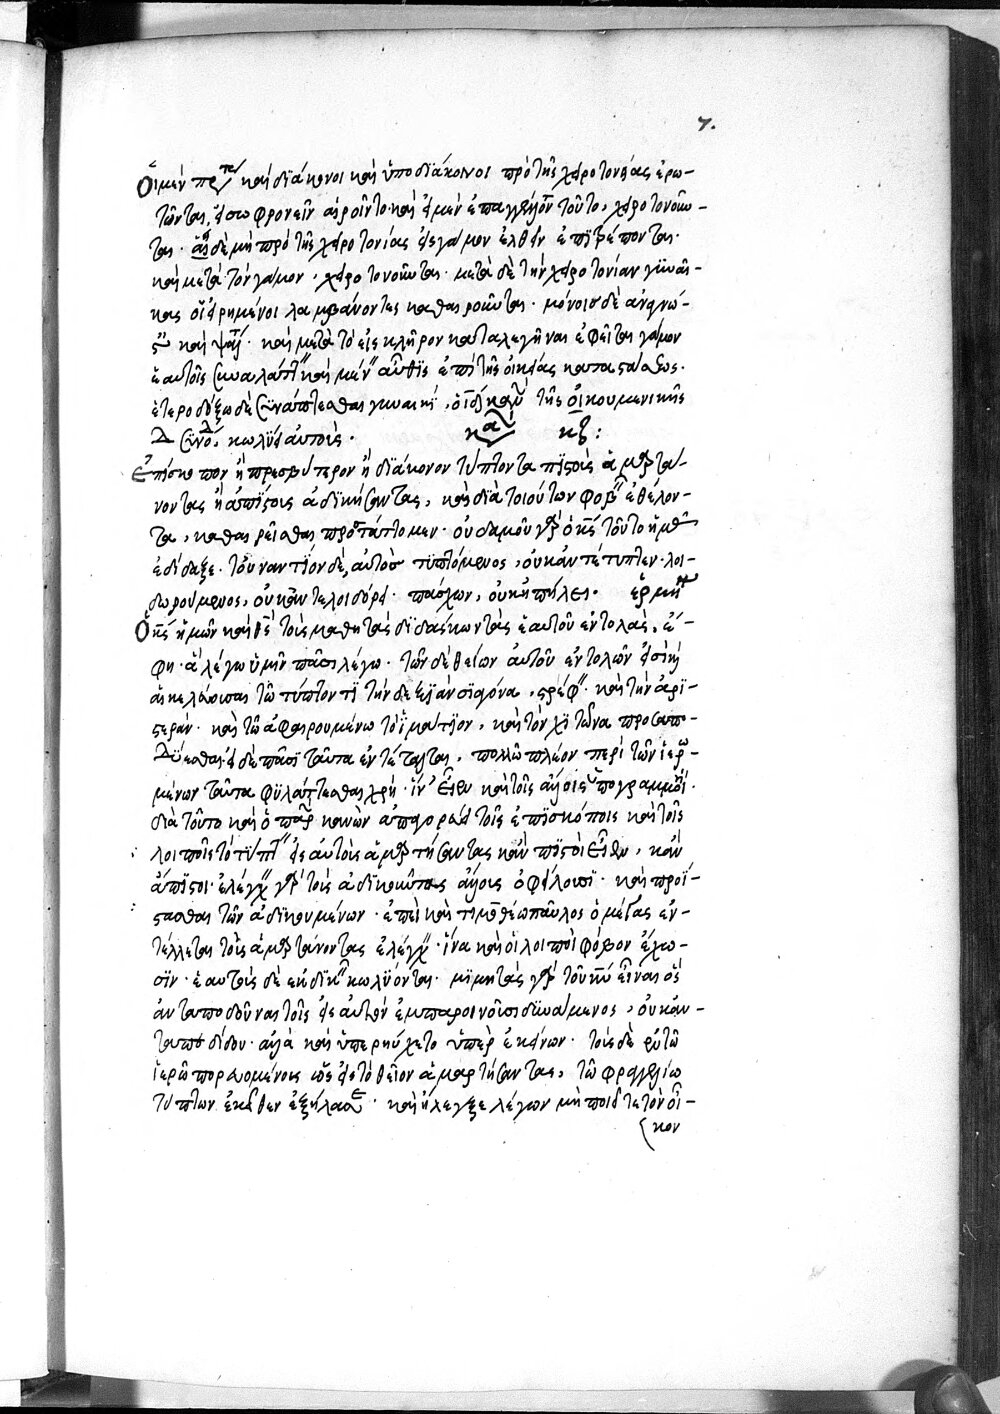 7.
Οἱ μὲν πρ καὶ διάκονοι καὶ ὑποδιάκονοι πρὸ τῆς χειροτονίας ἐρω-
τῶνται, εἰ σωφρονεῖν αἱροῖντο· καὶ εἰ μὲν ἐπαγγ τοῦτο, χειροτονοῦν-
ται· εἰ δὲ μὴ πρὸ τῆς χειροτονίας εἰς γάμον ἐλθεῖν ἐπιτρέπονται·
καὶ μετὰ τὸν γάμον, χειροτονοῦνται· μετὰ δὲ τὴν χειροτονίαν γυναῖ-
κας οἱ εἰρημένοι λαμβάνοντες καθαιροῦνται· μόνοις δὲ ἀναγνώ-
στ καὶ ψάλ· καὶ μετὰ τὸ εἰς κλῆρον καταλεγῆναι ἐφεῖται γάμον
ἑαυτοῖς συναλάττ καὶ μέν αὖθις ἐπὶ τῆς οἰκείας καταστάσεως·
ἑτεροδόξω δὲ συνάπτεσθαι γυναικὶ, ὁ ιδ καν τῆς οἰκουμενικῆς
δ συνό. κωλύει αὐτοῖς· κα κζ:
Ἐπίσκοπον ἢ πρεσβύτερον ἢ διάκονον τύπτοντα πιστοὺς ἁμαρτά-
νοντας ἢ ἀπίστους ἀδικήσαντας, καὶ διὰ τοιούτων φοβ ἐθέλον-
τα, καθαιρεῖσθαι προστάττομεν· οὐδαμοῦ γὰρ ὁ κς τοῦτο ἡμᾶς
ἐδίδαξε· τοὐναντίον δὲ, αὐτὸς τυπτόμενος, οὐκ ἀντέτυπτεν· λοι-
δωρούμενος, οὐκ ἀντελοιδόρει· πάσχων, οὐκ ἠπείλει· ἑρμη
Ὁ κς ἡμῶν καὶ θς τοὺς μαθητὰς διδάσκων τὰς ἑαυτοῦ ἐντολὰς, ἔ-
φη· ἃ λέγω ὑμῖν πᾶσι λέγω· τῶν δὲ θείων αὐτοῦ ἐντολῶν ἐστὶ
τῶ τύπτοντι τὴν δεξιὰν σιαγόνα, στρέφ· καὶ τὴν ἀρι-
στεράν· καὶ τῶ ἀφαιρουμένω τὸ ἱμάτιον, καὶ τὸν χιτῶνα προσαπο-
δύεσθαι· εἰ δὲ πᾶσι ταῦτα ἐντέταλται, πολλῶ πλέον περὶ τῶν ἱερω
μένων ταῦτα φυλάττεσθαι χρή· καὶ τοῖς ἄλλοις ὑπογραμμοὶ·
διὰ τοῦτο καὶ ὁ παρ κανὼν ἀπαγορεύει τοῖς ἐπισκόποις καὶ τοῖς
λοιποῖς τὸ τύπτ εἰς αὐτοὺς ἁμαρτήσαντας κἂν πιστοὶ, κἂν
ἄπιστοι· ἐλέγχ γὰρ τοὺς ἀδικοῦντας ἄλλους ὀφείλουσι· καὶ προΐ-
στασθαι τῶν ἀδικουμένων· ἐπεὶ καὶ τιμοθέω παῦλος ὁ μέγας ἐν-
τέλλεται τοὺς ἁμαρτάνοντας ἐλέγχ· ἵνα καὶ οἱ λοιποὶ φόβον ἔχω-
σιν· ἑαυτοὺς δὲ ἐκδικ κωλύονται· μιμητὰς γὰρ τοῦ κυ εἶναι ὃς
ἀνταποδοῦναι τοῖς εἰς αὐτὸν ἐμπαροινοῦσι δυνάμενος, οὐκ ἀν-
ταπεδίδου· ἀλλὰ καὶ ὑπερηύχετο ὑπὲρ ἐκείνων· τοὺς δὲ ἐν τῶ
ἱερῶ πορευομένοις ὡς εἰς τὸ θεῖον ἁμαρτήσαντας, τῶ φραγγελίω
τύπτων ἐκεῖθεν ἐξήλασε· καὶ ἤλεγξε λέγων μὴ ποιεῖτε τὸν οἶ-
κον